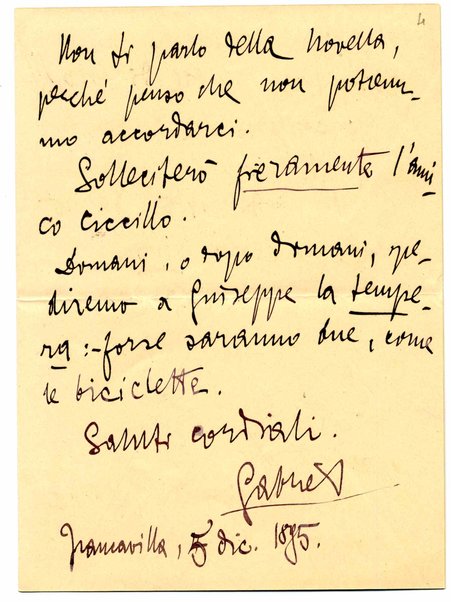 4
Non ti parlo della Novella,
perché penso che non potrem-
mo accordarci.
Solleciterò fieramente l'ami-
co Ciccillo.
Domani, o dopo domani, spe-
diremo a Giuseppe la tempe-
ra :- forse saranno due, come
le biciclette.
Saluti cordiali.
Gabriel
Francavilla, 5 dic. 1895.